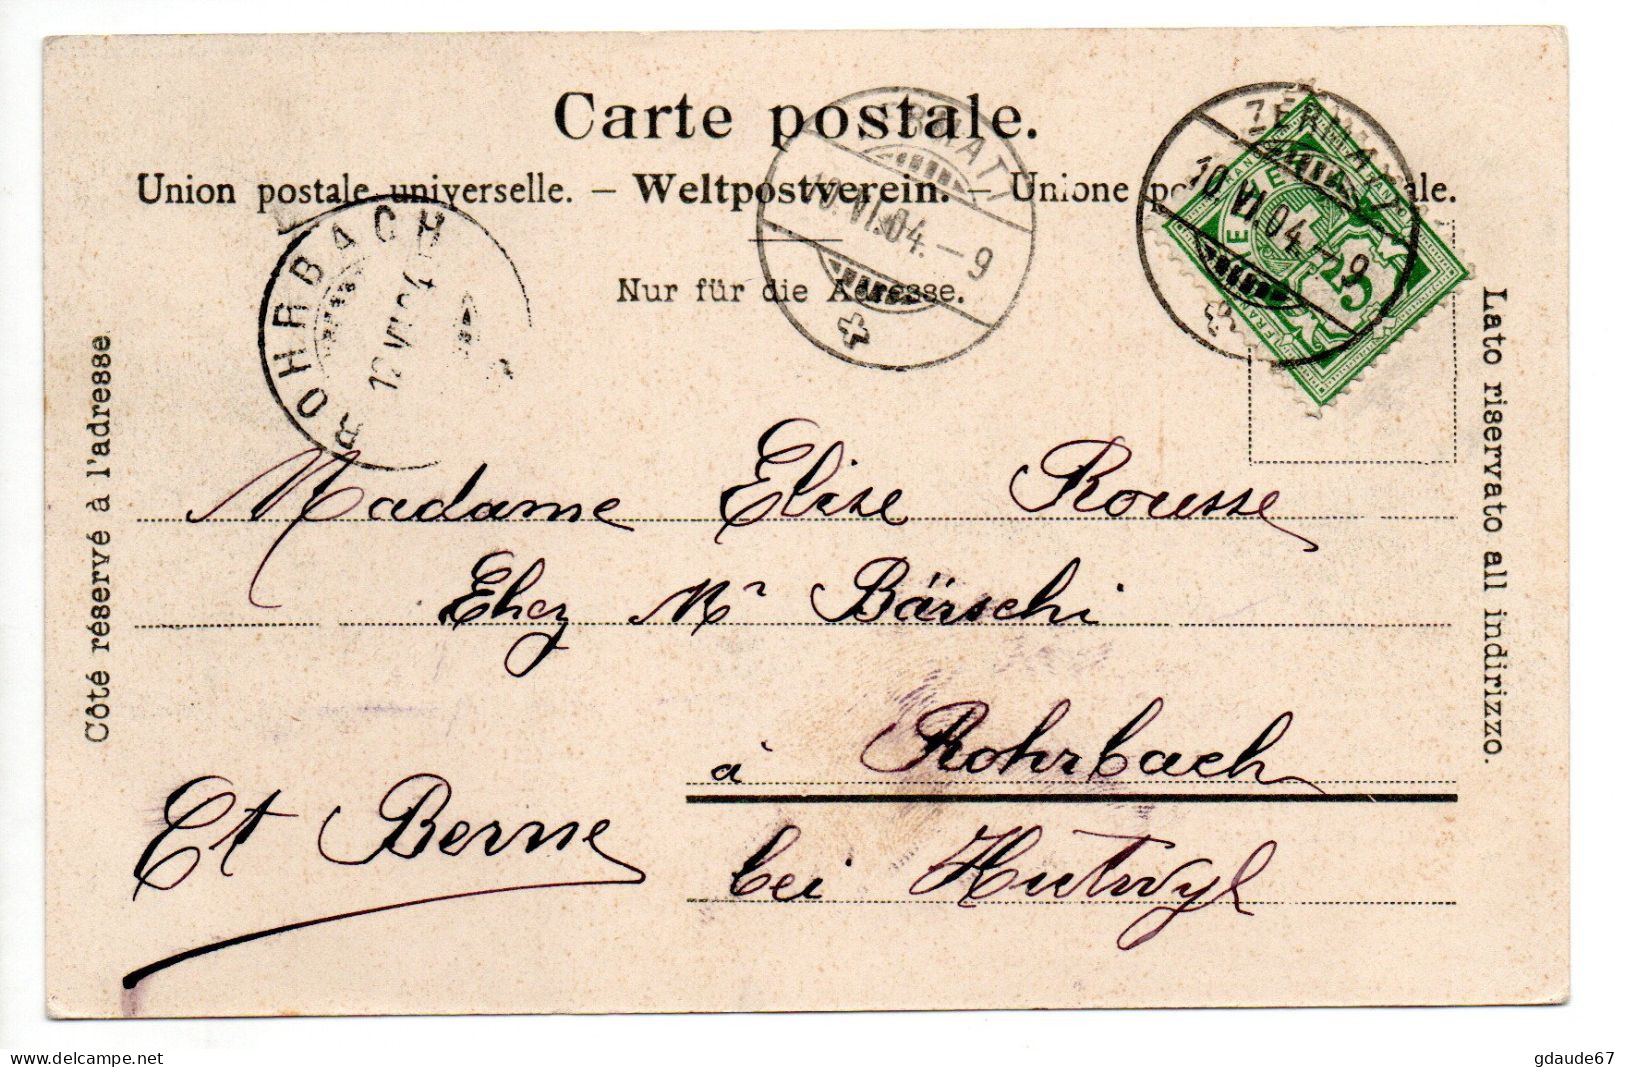 Carte postale.
Union postale universelle. – Weltpostverein. – Unione po le.
Nur für die Adresse.
Côté réservé à l'adresse
Lato riservato all indirizzo.
ROHRBACH
ZERMATT
10.VI.04.–9
ZERMATT
10.VI.04.–9
FRANCO
HELVETIA
Madame Elise Rousse
Chez Mr Bärschi
à Rohrbach
bei Hutwyl
Ct Berne
www.delcampe.net
gdaude67